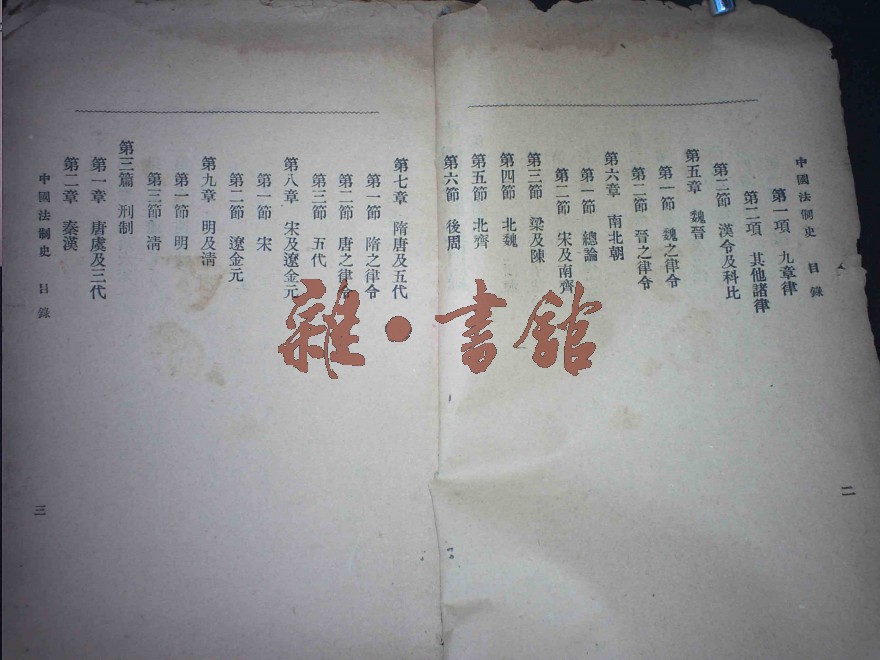 中國法制史　目錄
第一項　九章律
第二項　其他諸律
第二節　漢令及科比
第五章　魏晉
第一節　魏之律令
第二節　晉之律令
第六章　南北朝
第一節　總論
第二節　宋及南齊
第三節　梁及陳
第四節　北魏
第五節　北齊
第六節　後周
二
第七章　隋唐及五代
第一節　隋之律令
第二節　唐之律令
第三節　五代
第八章　宋及遼金元
第一節　宋
第二節　遼金元
第九章　明及清
第一節　明
第三節　清
第三篇　刑制
第一章　唐虞及三代
第二章　秦漢
中國法制史　目錄
三
雜·書館